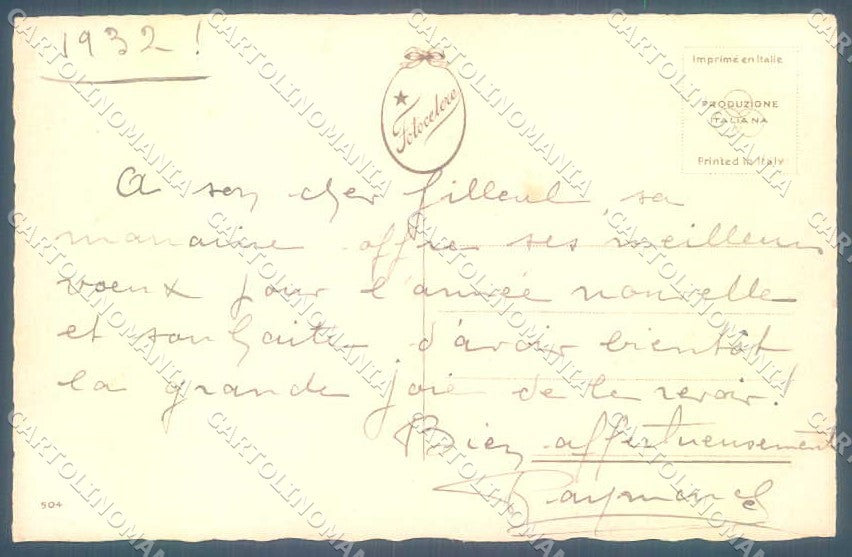 1932 !
Fotocelere
Imprimé en Italie
PRODUZIONE
ITALIANA
Printed in Italy
A son cher filleul, sa
marraine offre ses meilleurs
voeux pour l'année nouvelle
et souhaite d'avoir bientôt
la grande joie de le revoir!
Bien affectueusement
Raymonde
504
CARTOLINOMANIA